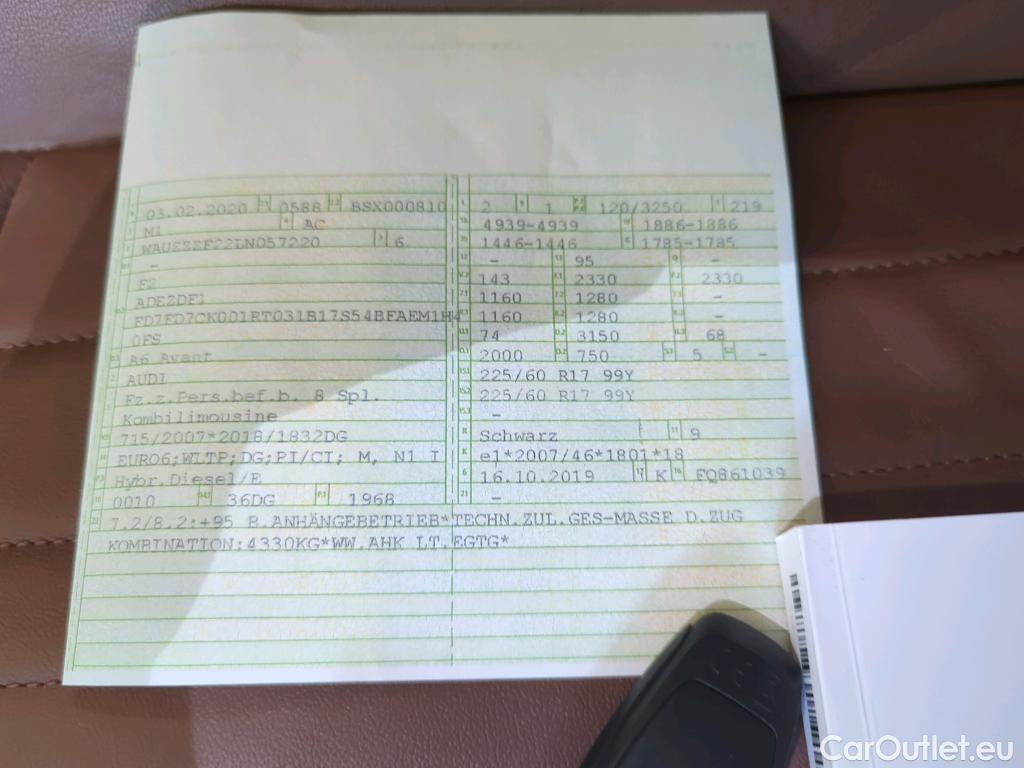 03.02.2020 0588 BSX000810
M1 AC
WAUZZZF22LN057220 6
-
F2
ADEZDF1
FD7FD7CK001RT031B17S54BFAEM1H4
0FS
A6 Avant
AUDI
Fz.z.Pers.bef.b. 8 Spl.
Kombilimousine
715/2007*2018/1832DG
EURO6;WLTP;DG;PI/CI; M, N1 I
Hybr.Diesel/E
0010 36DG 1968
2 1 120/3250 219
4939-4939 1886-1886
1446-1446 1785-1785
- 95 -
143 2330 2330
1160 1280 -
1160 1280 -
74 3150 68
2000 750 5 -
225/60 R17 99Y
225/60 R17 99Y
-
Schwarz 9
e1*2007/46*1801*18
16.10.2019 K FQ861039
-
7.2/8.2:+95 B.ANHÄNGEBETRIEB*TECHN.ZUL.GES-MASSE D.ZUG
KOMBINATION:4330KG*WW.AHK LT.EGTG*
CarOutlet.eu